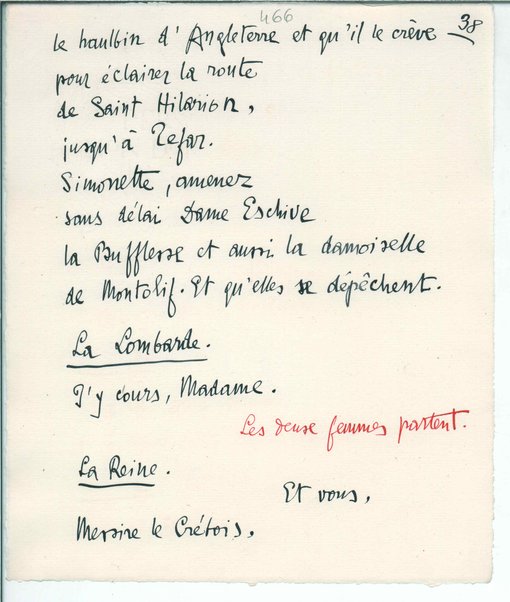 466
38
le haulbin d'Angleterre et qu'il le crève
pour éclairer la route
de Saint Hilarion,
jusqu'à Tefar.
Simonette, amenez
sans délai Dame Eschive
la Bufflesse et aussi la damoiselle
de Montolif. Et qu'elles se dépêchent.
La Lombarde.
J'y cours, Madame.
Les deuse femmes partent.
La Reine.
Et vous,
Messire le Crétois,